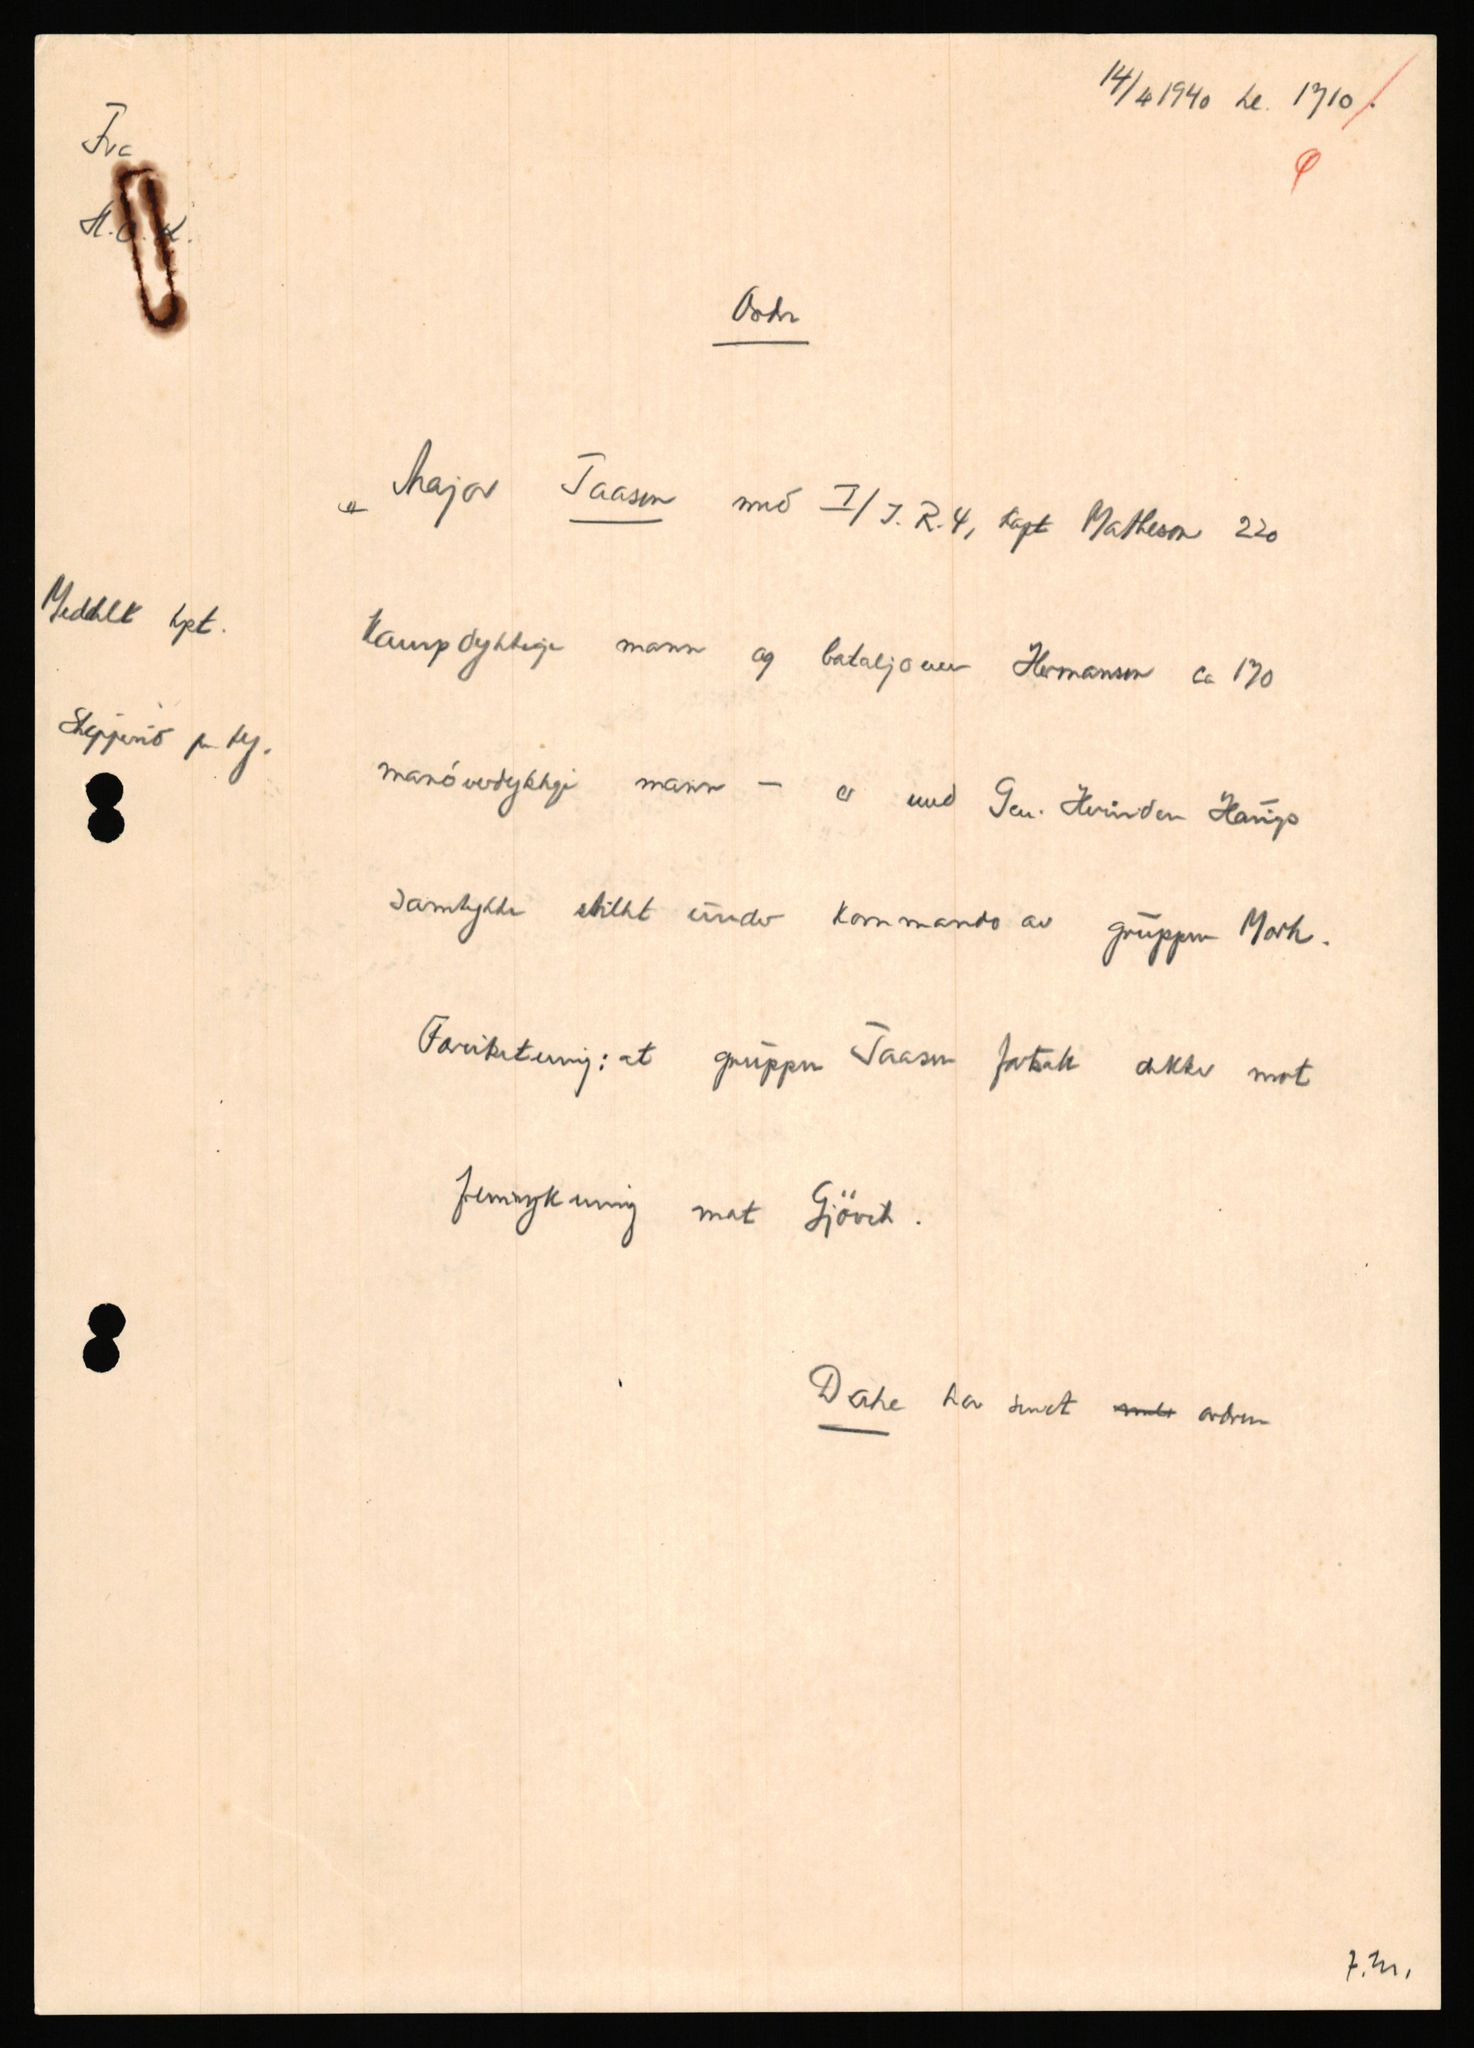 14/4 1940 kl. 1710.
Fra
H.O.K.
Ordre
"Major Taasen med I/I.R.4, kapt Matheson 220
Meddelt kpt.
kampdyktige mann og bataljonen Hermansen ca 170
manöverdyktige mann – er med Gen. Hvinden Haugs
samtykke stillt under kommando av gruppen Mork.
Forutsetning: at gruppen Taasen fortsatt dekker mot
fremrykning mot Gjövik.
Dahe har sendt ordren